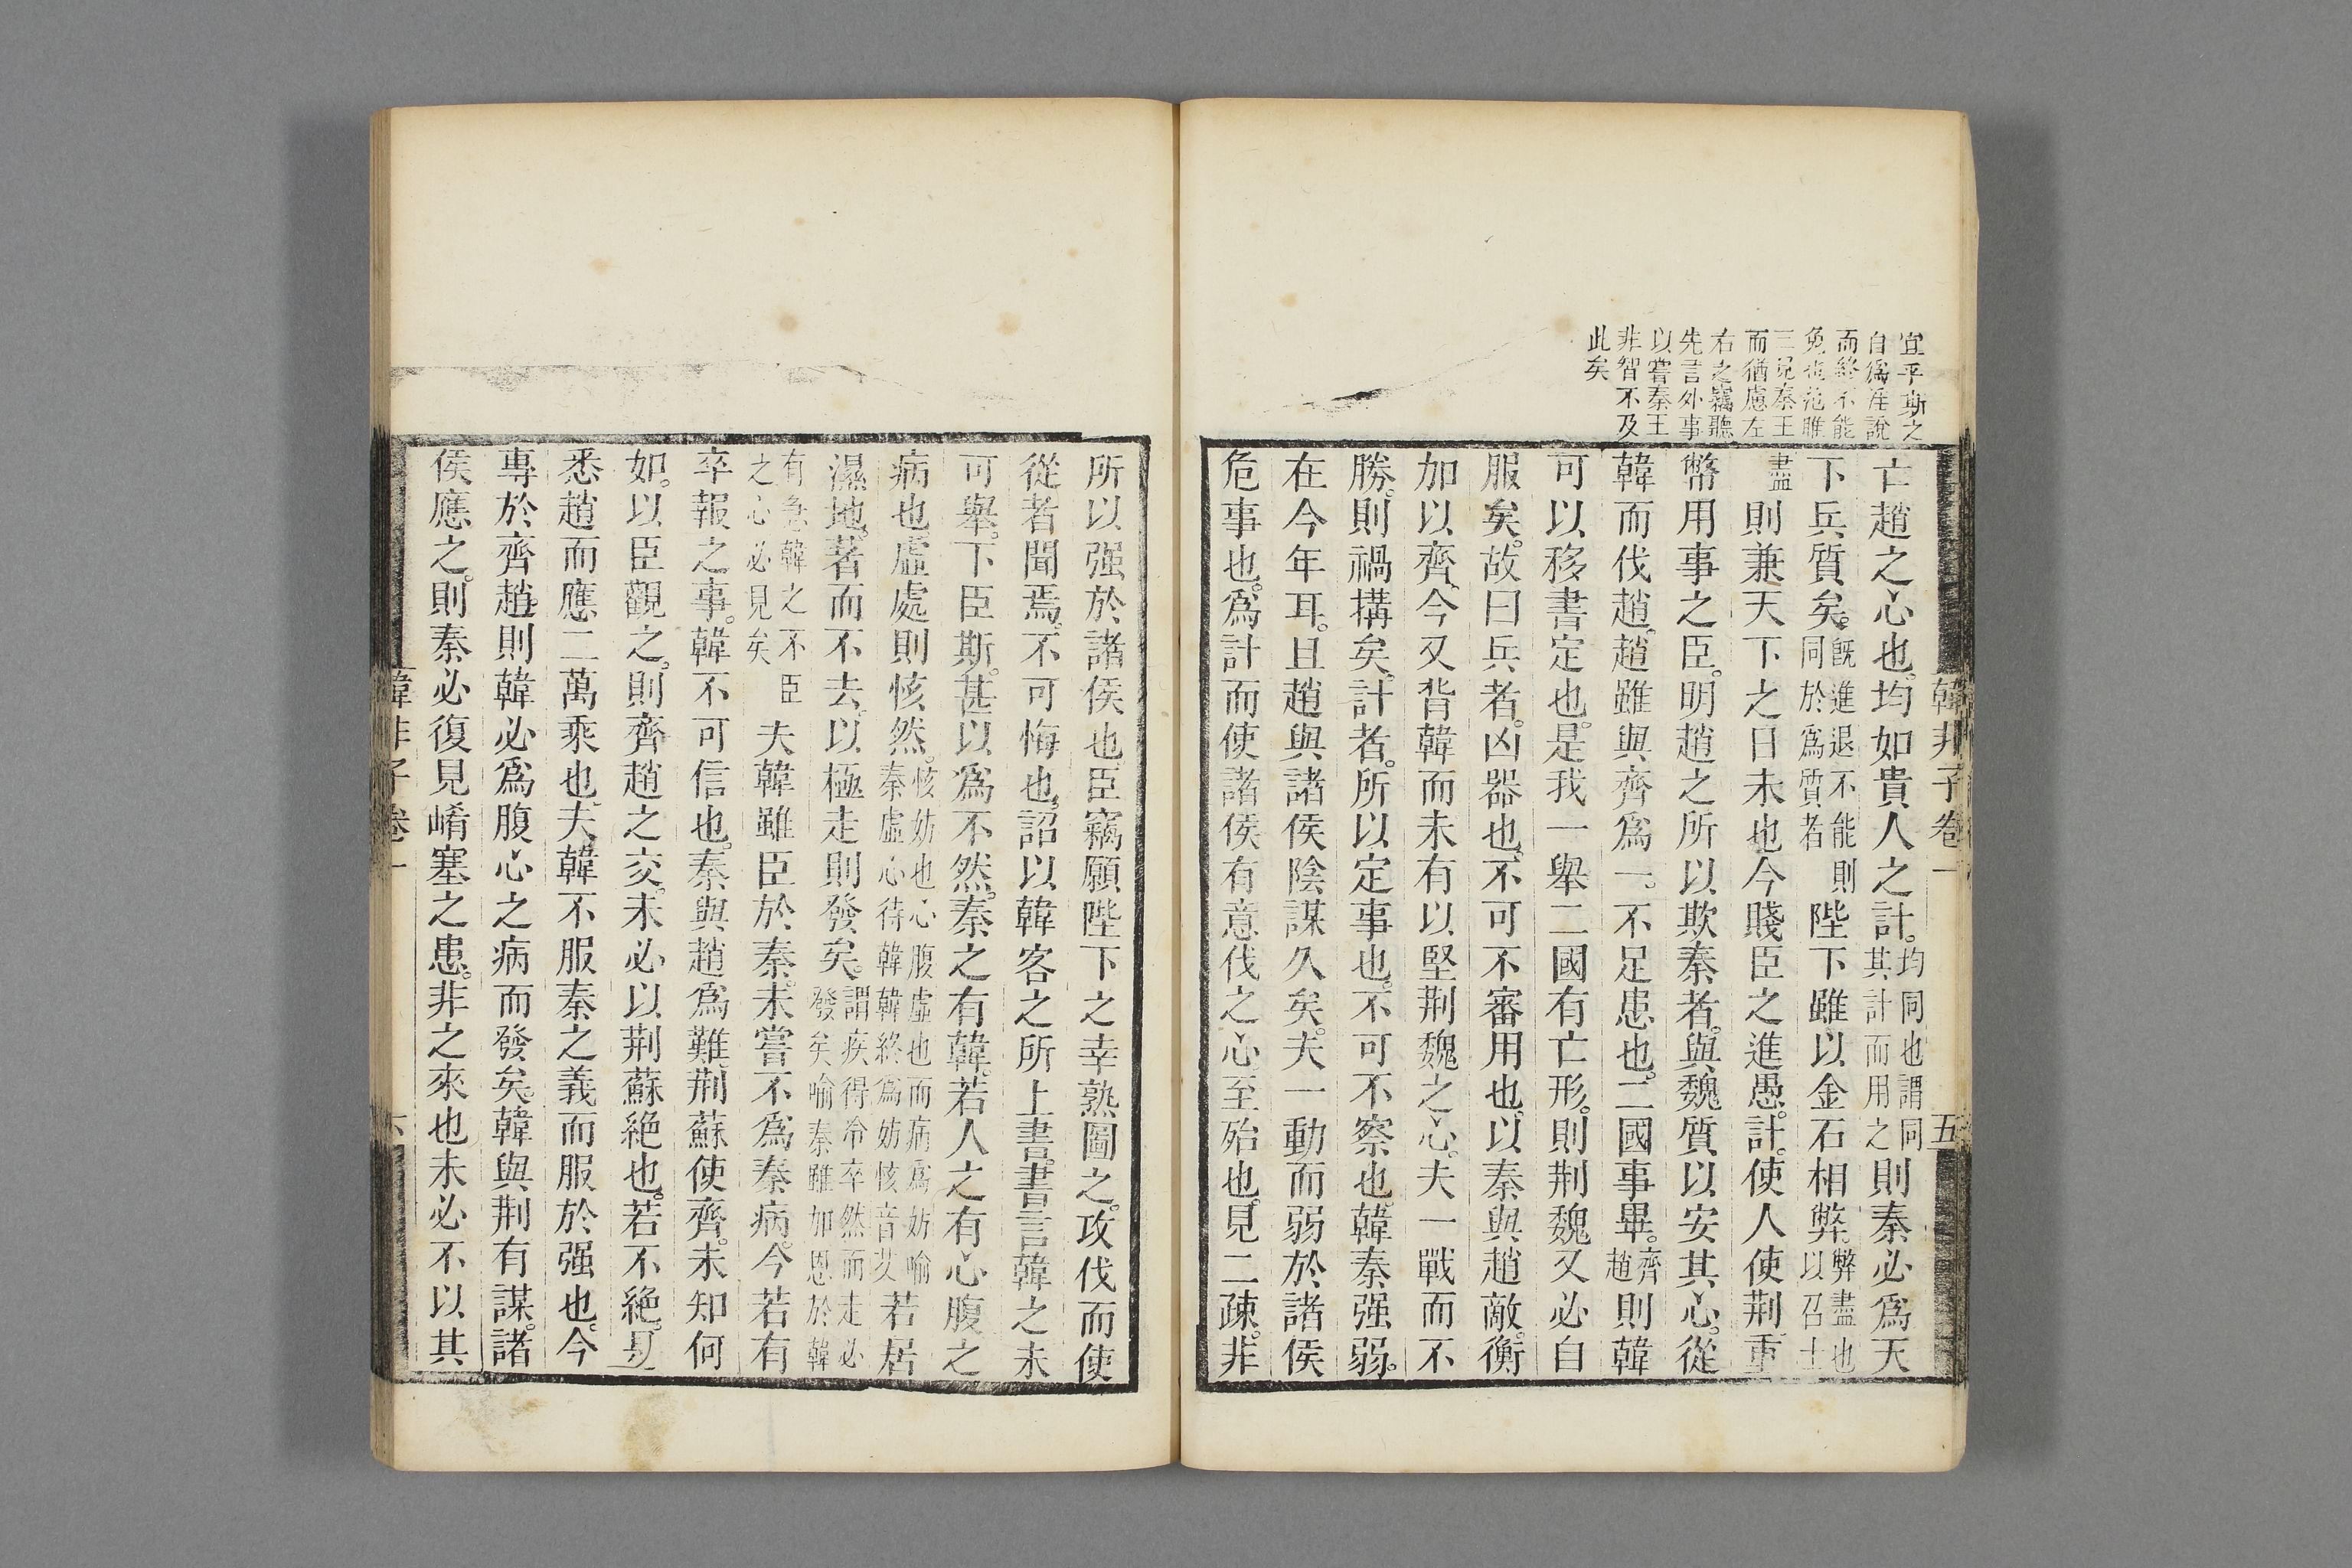 宜乎斯之
自爲淫說
而終不能
免也范雎
三見秦王
而猶慮左
右之竊聽
先言外事
以嘗秦王
非智不及
此矣
韓非子卷一 五
亡趙之心也。均如貴人之計。均同也謂同其計而用之則秦必爲天
下兵質矣。旣進退不能同於爲質者則陛下雖以金石相弊。弊盡也以召士
盡則兼天下之日未也今賤臣之進愚計。使人使荆重
幣用事之臣。明趙之所以欺秦者。與魏質以安其心。從
韓而伐趙。趙雖與齊爲一。不足患也。二國事畢。齊趙則韓
可以移書定也。是我一舉二國有亡形。則荆魏又必自
服矣。故曰兵者。凶器也。不可不審用也。以秦與趙敵。衡
加以齊、今又背韓而未有以堅荆魏之心。夫一戰而不
勝。則禍搆矣。計者。所以定事也。不可不察也。韓秦强弱。
在今年耳。且趙與諸侯陰謀久矣。夫一動而弱於諸侯
危事也。爲計而使諸侯有意伐之心至殆也。見二疎。非
所以强於諸侯也臣竊願陛下之幸熟圖之。攻伐而使
從者聞焉。不可悔也。詔以韓客之所上書。書言韓之未
可舉。下臣斯。甚以爲不然。秦之有韓。若人之有心腹之
病也。虛處則㤥然。㤥妨也心腹虛也而病爲妨喻秦虛心待韓韓終爲妨㤥音艾若居
濕地。著而不去。以極走則發矣。謂疾得冷卒然而走必發矣喻秦雖加恩於韓
有急韓之不臣之心必見矣夫韓雖臣於秦。未嘗不爲秦病。今若有
卒報之事。韓不可信也。秦與趙爲難。荆蘇使齊。未知何
如。以臣觀之。則齊趙之交。未必以荆蘇絕也。若不絕。是
悉趙而應二萬乘也。夫韓不服秦之義而服於强也。今
專於齊趙。則韓必爲腹心之病而發矣。韓與荆有謀。諸
侯應之。則秦必復見崤塞之患。非之來也未必不以其
韓非子卷一 六